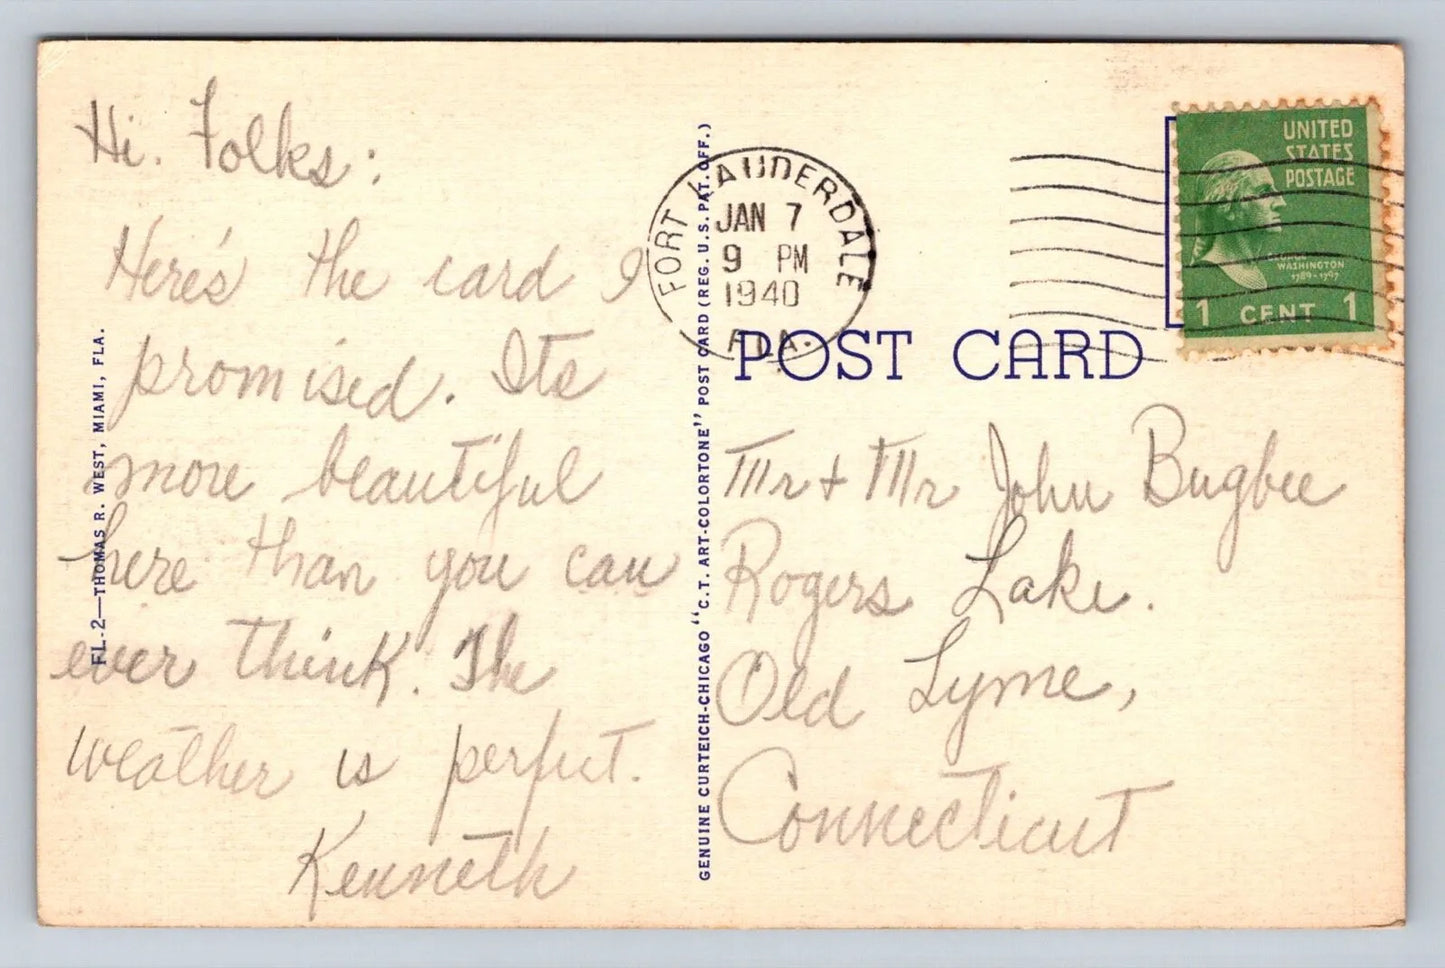 Hi. Folks:
Here's the card I
promised. Its
more beautiful
here than you can
ever think. The
weather is perfect.
Kenneth
FL-2—THOMAS R. WEST, MIAMI, FLA.
GENUINE CURTEICH-CHICAGO "C.T. ART-COLORTONE" POST CARD (REG. U.S. PAT. OFF.)
FORT LAUDERDALE
JAN 7
9 PM
1940
FLA.
UNITED
STATES
POSTAGE
GEORGE
WASHINGTON
1789-1797
1 CENT 1
POST CARD
Mr + Mr John Bugbee
Rogers Lake.
Old Lyme,
Connecticut